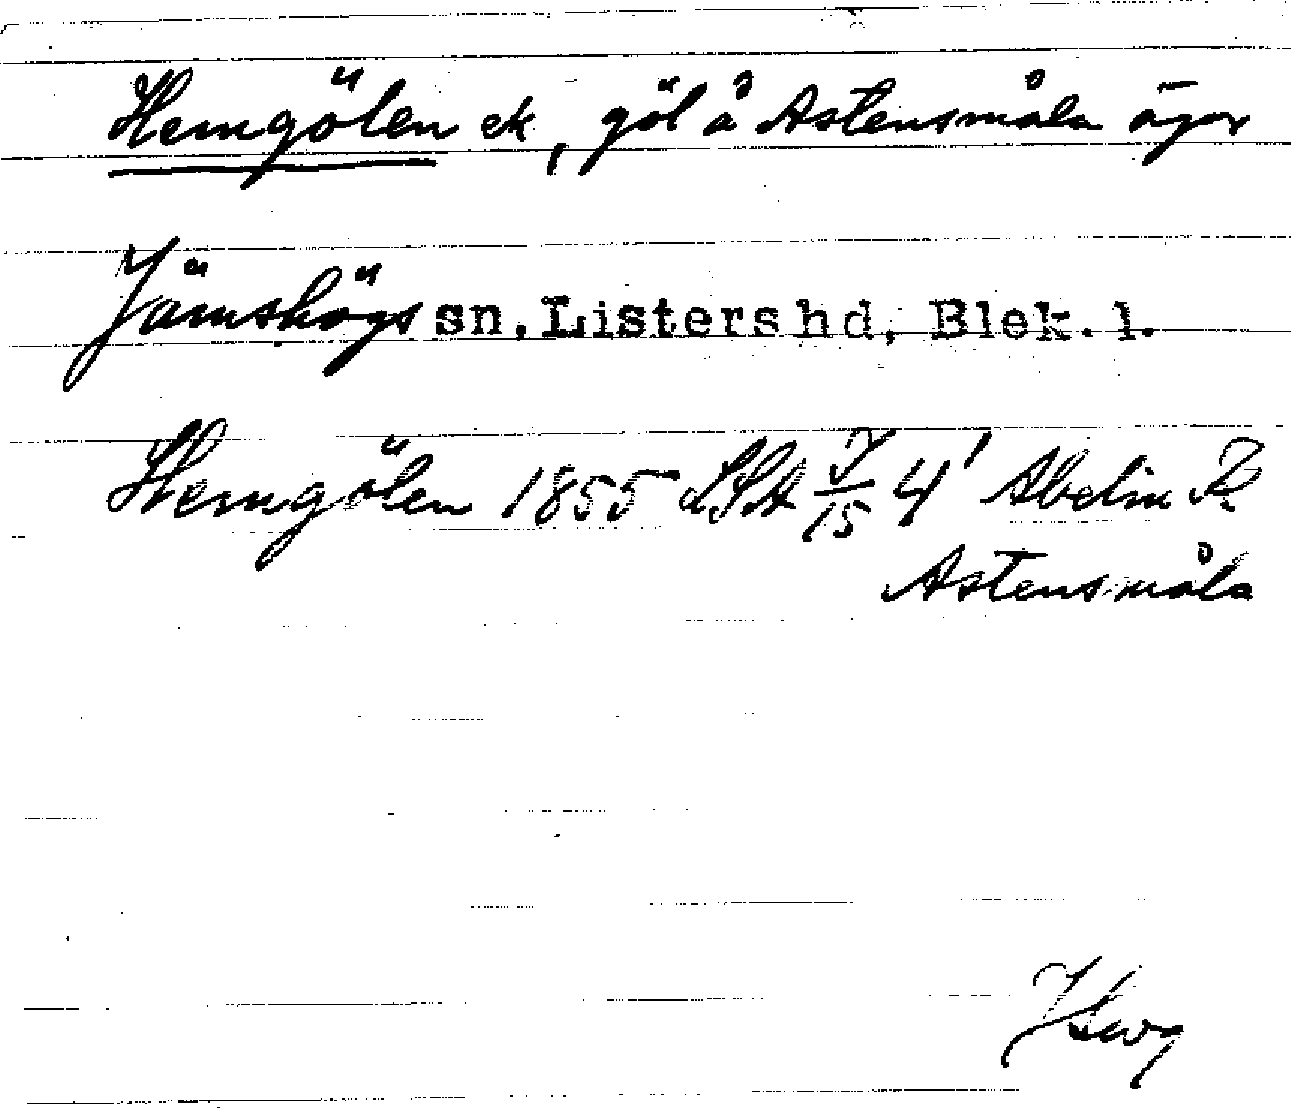 Hemgölen ek, göl å Astensmåla ägor
Jämshögs sn, Listers hd, Blek. l.
Hemgölen 1855 LSA J/15 4' Abelin R
Astensmåla